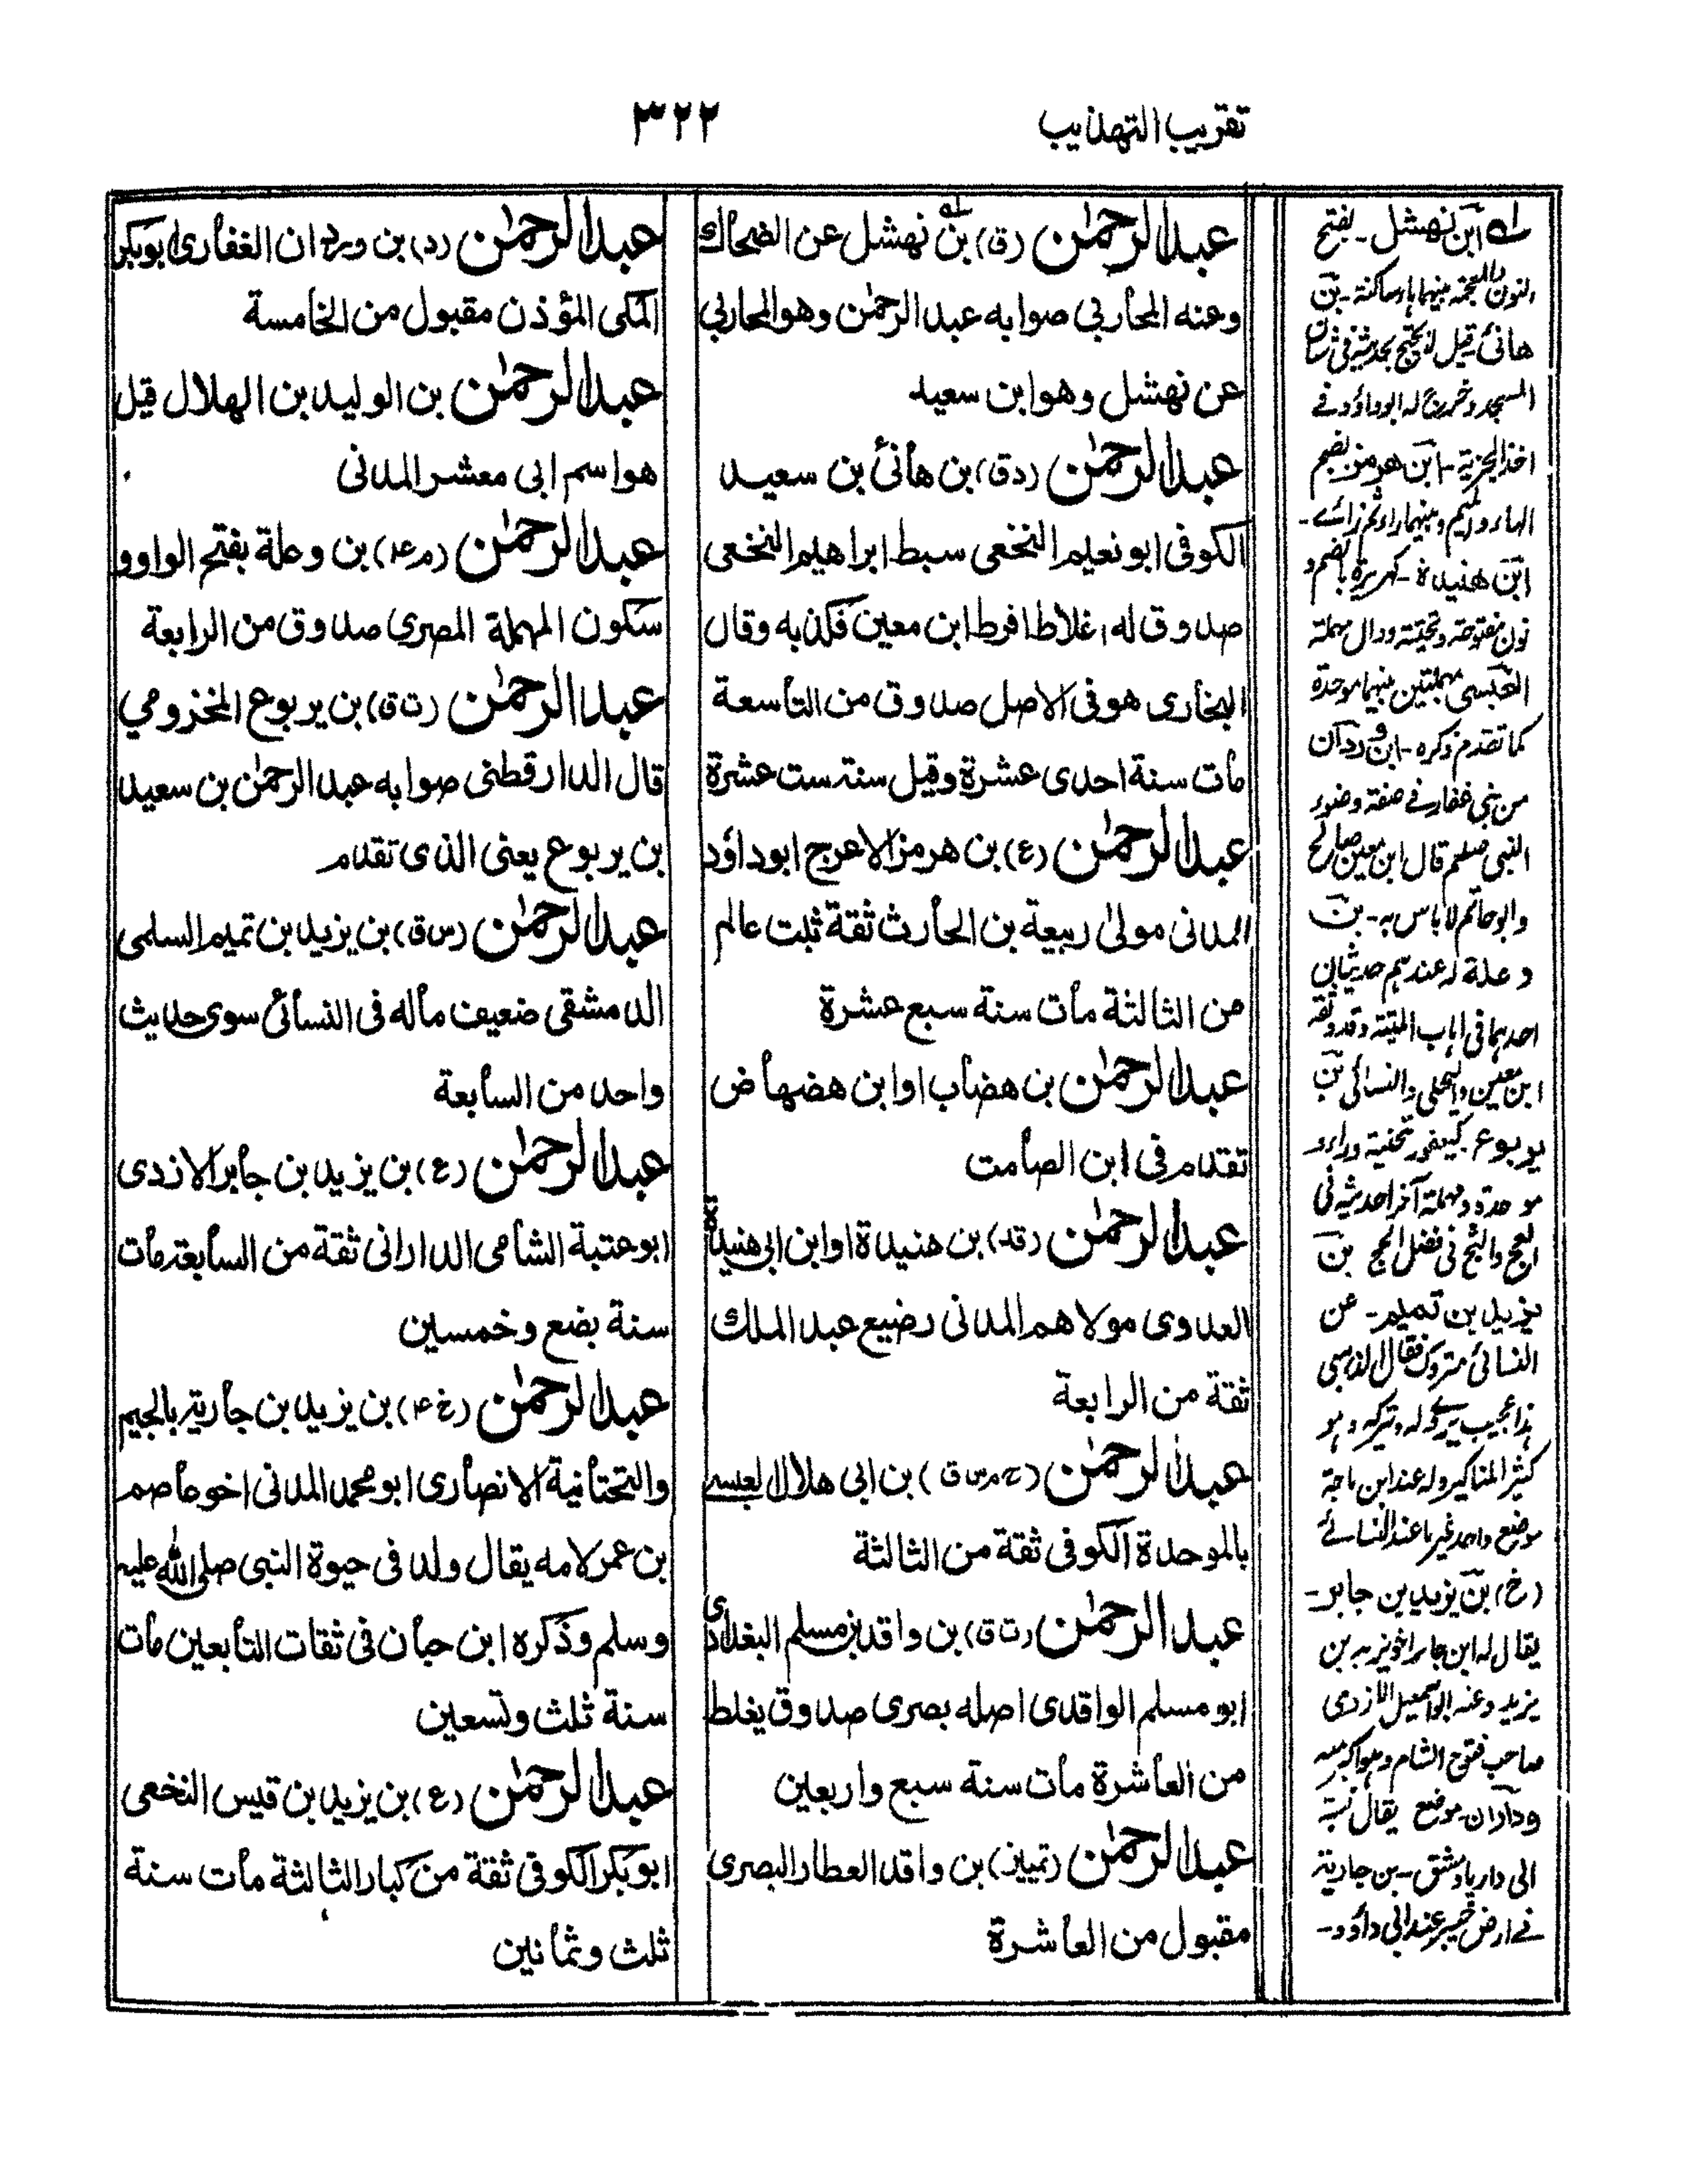 تقريب التهذيب
٣٢٢
عبدالرحمٰن (ق) بن نهشل عن الضحاك
وعنه المحاربي صوابه عبد الرحمٰن وهو المحاربي
عن نهشل وهو ابن سعيد
عبدالرحمٰن (دق) بن هانئ بن سعيد
الكوفى ابو نعيم النخعى سبط ابراهيم النخعى
صدوق له اغلاط افرط ابن معين فكذبه وقال
البخارى هو فى الاصل صدوق من التاسعة
مات سنة احدى عشرة وقيل سنة ست عشرة
عبدالرحمٰن (ع) بن هرمز الاعرج ابو داؤد
المدنى مولى ربيعة بن الحارث ثقة ثبت عالم
من الثالثة مات سنة سبع عشرة
عبدالرحمٰن بن هضاب او ابن هضهاض
تقدم فى ابن الصامت
عبدالرحمٰن (قد) بن هنيدة او ابن ابى هنيدة
العدوى مولاهم المدنى رضيع عبد الملك
ثقة من الرابعة
عبدالرحمٰن (خ م س ق) بن ابى هلال العبسى
بالموحدة الكوفى ثقة من الثالثة
عبدالرحمٰن (ت ق) بن واقد بن مسلم البغدادى
ابو مسلم الواقدى اصله بصرى صدوق يغلط
من العاشرة مات سنة سبع واربعين
عبدالرحمٰن (تمييز) بن واقد العطار البصرى
مقبول من العاشرة
عبدالرحمٰن (د) بن وردان الغفارى ابو بكر
المكى المؤذن مقبول من الخامسة
عبدالرحمٰن بن الوليد بن الهلال قيل
هو اسم ابى معشر المدنى
عبدالرحمٰن (م ٤) بن وعلة بفتح الواو و
سكون المهملة المصري صدوق من الرابعة
عبدالرحمٰن (ت ق) بن يربوع المخزومي
قال الدارقطنى صوابه عبد الرحمٰن بن سعيد
بن يربوع يعنى الذى تقدم
عبدالرحمٰن (س ق) بن يزيد بن تميم السلمى
الدمشقى ضعيف ماله فى النسائى سوى حديث
واحد من السابعة
عبدالرحمٰن (ع) بن يزيد بن جابر الازدى
ابو عتبة الشامى الدارانى ثقة من السابعة مات
سنة بضع وخمسين
عبدالرحمٰن (خ ٤) بن يزيد بن جارية بالجيم
والتحتانية الانصارى ابو محمد المدنى اخو عاصم
بن عمر لامه يقال ولد فى حيوة النبى صلى الله عليه
وسلم وذكره ابن حبان فى ثقات التابعين مات
سنة ثلث وتسعين
عبدالرحمٰن (ع) بن يزيد بن قيس النخعى
ابو بكر الكوفى ثقة من كبار الثالثة مات سنة
ثلث وثمانين
له ابن نهشل - بفتح
النون والمعجمة بينهما هاء ساكنة - بن
هانئ قيل له
المسجد وخرج له ابو داؤد فى
اخذ الجزية - ابن هرمز بضم
الهاء والميم وبينهما راء ثم زائے -
ابن هنيدة -
نون مفتوحة وتحتية ودال مهملة
العبسى بمهملتين بينهما موحدة
كما تقدم ذكره - ابن وردان
من بنى غفار فے صفة وضوء
النبى صلعم قال ابن معين صالح
وابو حاتم لا باس به - بن
وعلة له عندهم حديثان
احدهما فى اهاب الميتة وقد وثقه
ابن معين والعجلى والنسائى بن
يربوع كيعفور بتحتية وراء و
موحدة ومهملة آخرا حديثه فى
العج والثج فى فضل الحج بن
يزيد بن تميم - عن
النسائى متروك فقال الذهبى
هذا عجيب يروے له وتركه وهو
كثير المناكير وله عند ابن ماجة
موضع واحد غير ما عند النسائے
(خ) بن يزيد بن جابر -
يقال له ابن جابر اخو يزيد بن
يزيد وعنه ابو اسمعيل الازدى
صاحب فتوح الشام وهو اكبر منه
ودآران موضع يقال نسبة
الى داريا دمشق - بن جارية
فے ارض خيبر عند ابى داؤد -